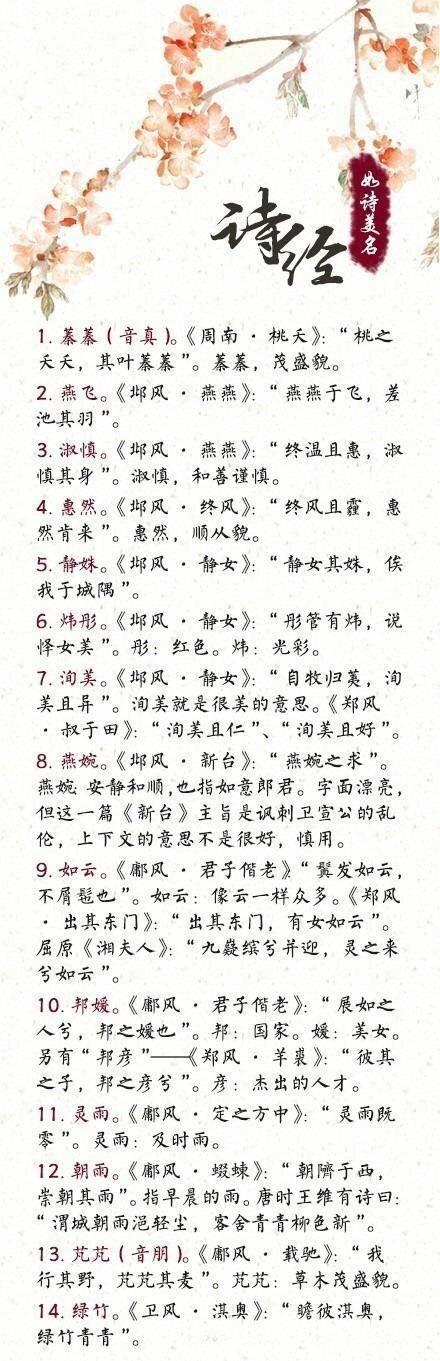 诗经
如诗美名
1. 蓁蓁（音真）。《周南·桃夭》：“桃之
夭夭，其叶蓁蓁”。蓁蓁，茂盛貌。
2. 燕飞。《邶风·燕燕》：“燕燕于飞，差
池其羽”。
3. 淑慎。《邶风·燕燕》：“终温且惠，淑
慎其身”。淑慎，和善谨慎。
4. 惠然。《邶风·终风》：“终风且霾，惠
然肯来”。惠然，顺从貌。
5. 静姝。《邶风·静女》：“静女其姝，俟
我于城隅”。
6. 炜彤。《邶风·静女》：“彤管有炜，说
怿女美”。彤：红色。炜：光彩。
7. 洵美。《邶风·静女》：“自牧归荑，洵
美且异”。洵美就是很美的意思。《郑风
·叔于田》：“洵美且仁”、“洵美且好”。
8. 燕婉。《邶风·新台》：“燕婉之求”。
燕婉 安静和顺,也指如意郎君。字面漂亮,
但这一篇《新台》主旨是讽刺卫宣公的乱
伦，上下文的意思不是很好，慎用。
9. 如云。《鄘风·君子偕老》“鬒发如云，
不屑髢也”。如云：像云一样众多。《郑风
·出其东门》：“出其东门，有女如云”。
屈原《湘夫人》：“九嶷缤兮并迎，灵之来
兮如云”。
10. 邦媛。《鄘风·君子偕老》：“展如之
人兮，邦之媛也”。邦：国家。媛：美女。
另有“邦彦”——《郑风·羊裘》：“彼其
之子，邦之彦兮”。彦：杰出的人才。
11. 灵雨。《鄘风·定之方中》：“灵雨既
零”。灵雨：及时雨。
12. 朝雨。《鄘风·蝃蝀》：“朝隮于西，
崇朝其雨”。指早晨的雨。唐时王维有诗曰：
“渭城朝雨浥轻尘，客舍青青柳色新”。
13. 芃芃（音朋）。《鄘风·载驰》：“我
行其野，芃芃其麦”。芃芃：草木茂盛貌。
14. 绿竹。《卫风·淇奥》：“瞻彼淇奥，
绿竹青青”。